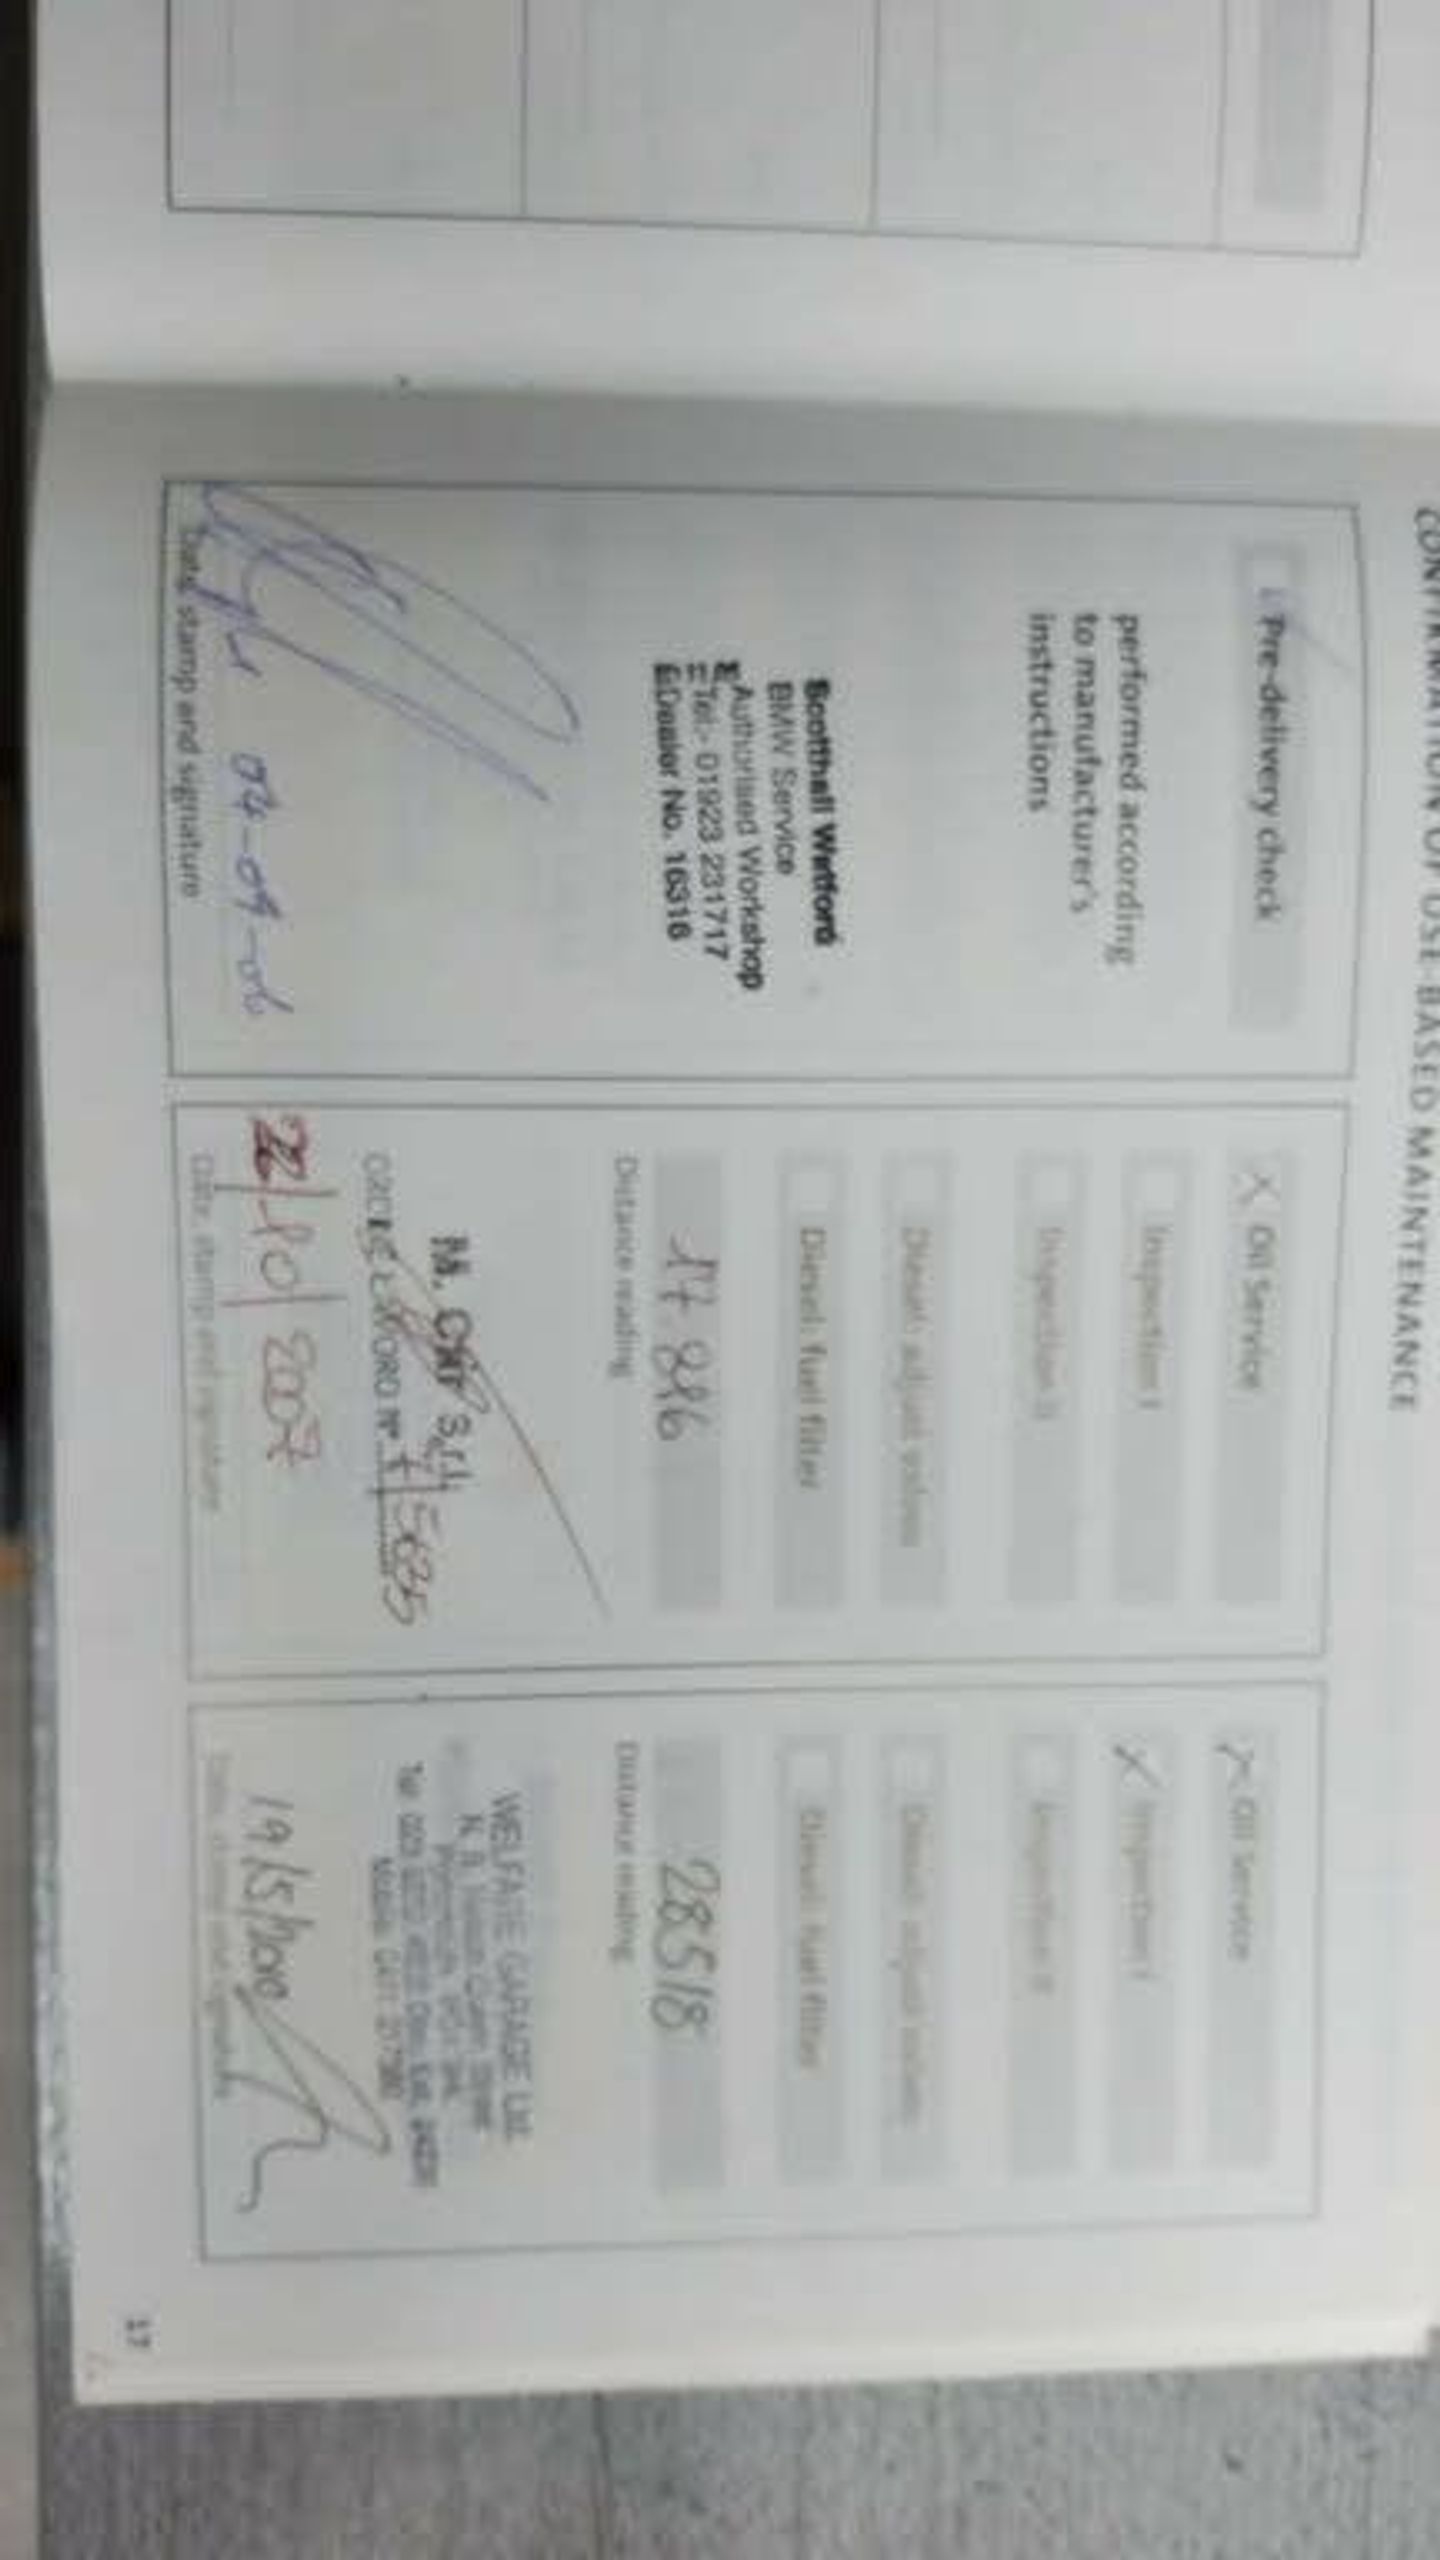 CONFIRMATION OF USE-BASED MAINTENANCE
Pre-delivery check
performed according
to manufacturer's
instructions
Scotthall Watford
BMW Service
Authorised Workshop
Tel:- 01923 231717
Dealer No. 16316
04-09-06
Date, stamp and signature
X Oil Service
Inspection I
Inspection II
Diesel: adjust valves
Diesel: fuel filter
17.886
Distance reading
M. CAR S.r.l.
22/10/2007
Date, stamp and signature
X Oil Service
X Inspection I
Inspection II
Diesel: adjust valves
Diesel: fuel filter
28518
Distance reading
WELFATE GARAGE Ltd.
19/5/2010
Date, stamp and signature
17